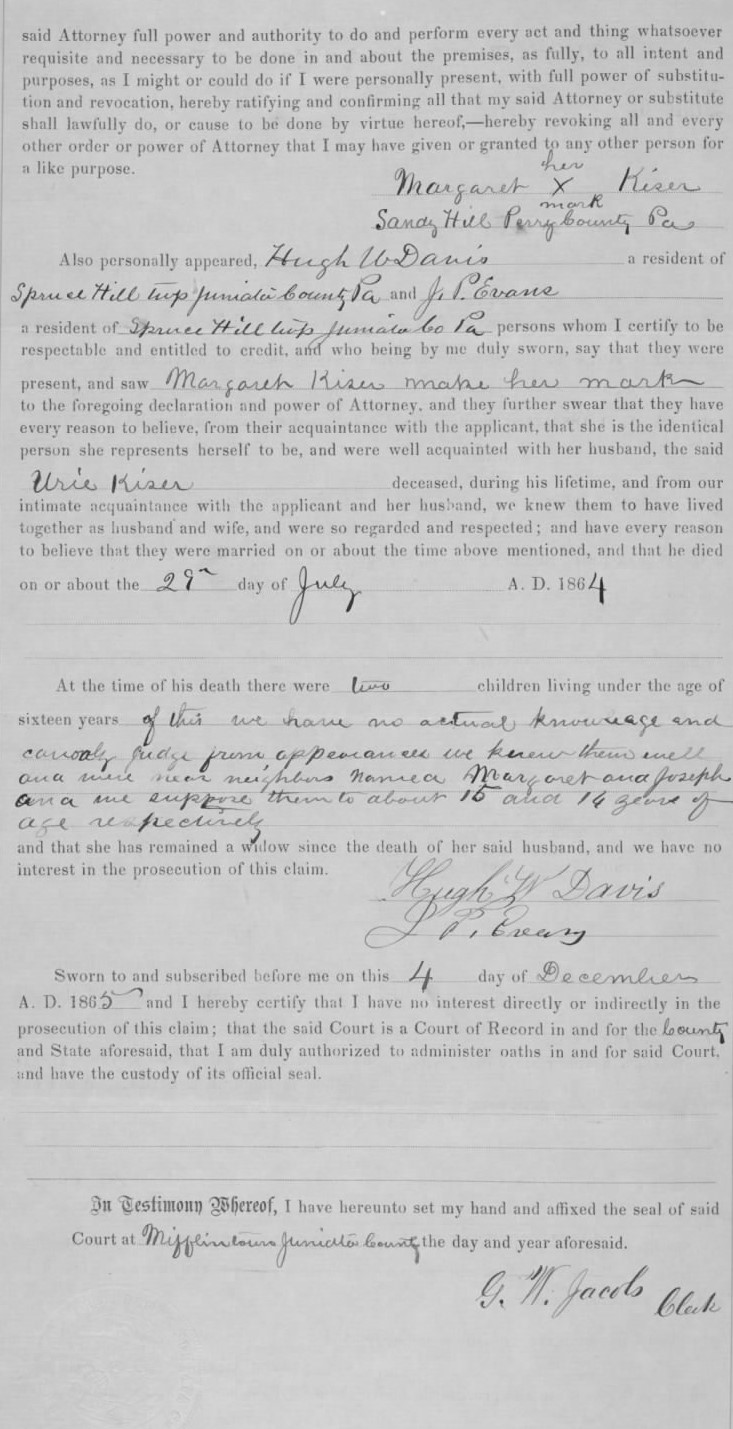 said Attorney full power and authority to do and perform every act and thing whatsoever
requisite and necessary to be done in and about the premises, as fully, to all intent and
purposes, as I might or could do if I were personally present, with full power of substitu-
tion and revocation, hereby ratifying and confirming all that my said Attorney or substitute
shall lawfully do, or cause to be done by virtue hereof,—hereby revoking all and every
other order or power of Attorney that I may have given or granted to any other person for
a like purpose.
her
Margaret X Kiser
mark
Sandy Hill Perry County Pa
Also personally appeared, Hugh W Davis a resident of
Spruce Hill twp Juniata County Pa and J. P. Evans
a resident of Spruce Hill twp Juniata Co Pa persons whom I certify to be
respectable and entitled to credit, and who being by me duly sworn, say that they were
present, and saw Margaret Kiser make her mark
to the foregoing declaration and power of Attorney, and they further swear that they have
every reason to believe, from their acquaintance with the applicant, that she is the identical
person she represents herself to be, and were well acquainted with her husband, the said
Urie Kiser deceased, during his lifetime, and from our
intimate acquaintance with the applicant and her husband, we knew them to have lived
together as husband and wife, and were so regarded and respected; and have every reason
to believe that they were married on or about the time above mentioned, and that he died
on or about the 29th day of July A. D. 1864
At the time of his death there were two children living under the age of
sixteen years of this we have no actual knowledge and
can only judge from appearances we knew them well
and were near neighbors named Margaret and Joseph
and we suppose them to about 15 and 14 years of
age respectively
and that she has remained a widow since the death of her said husband, and we have no
interest in the prosecution of this claim.
Hugh W Davis
J. P. Evans
Sworn to and subscribed before me on this 4 day of December
A. D. 1865 and I hereby certify that I have no interest directly or indirectly in the
prosecution of this claim; that the said Court is a Court of Record in and for the County
and State aforesaid, that I am duly authorized to administer oaths in and for said Court,
and have the custody of its official seal.
In Testimony Whereof, I have hereunto set my hand and affixed the seal of said
Court at Mifflintown Juniata County the day and year aforesaid.
G. W. Jacobs Clerk